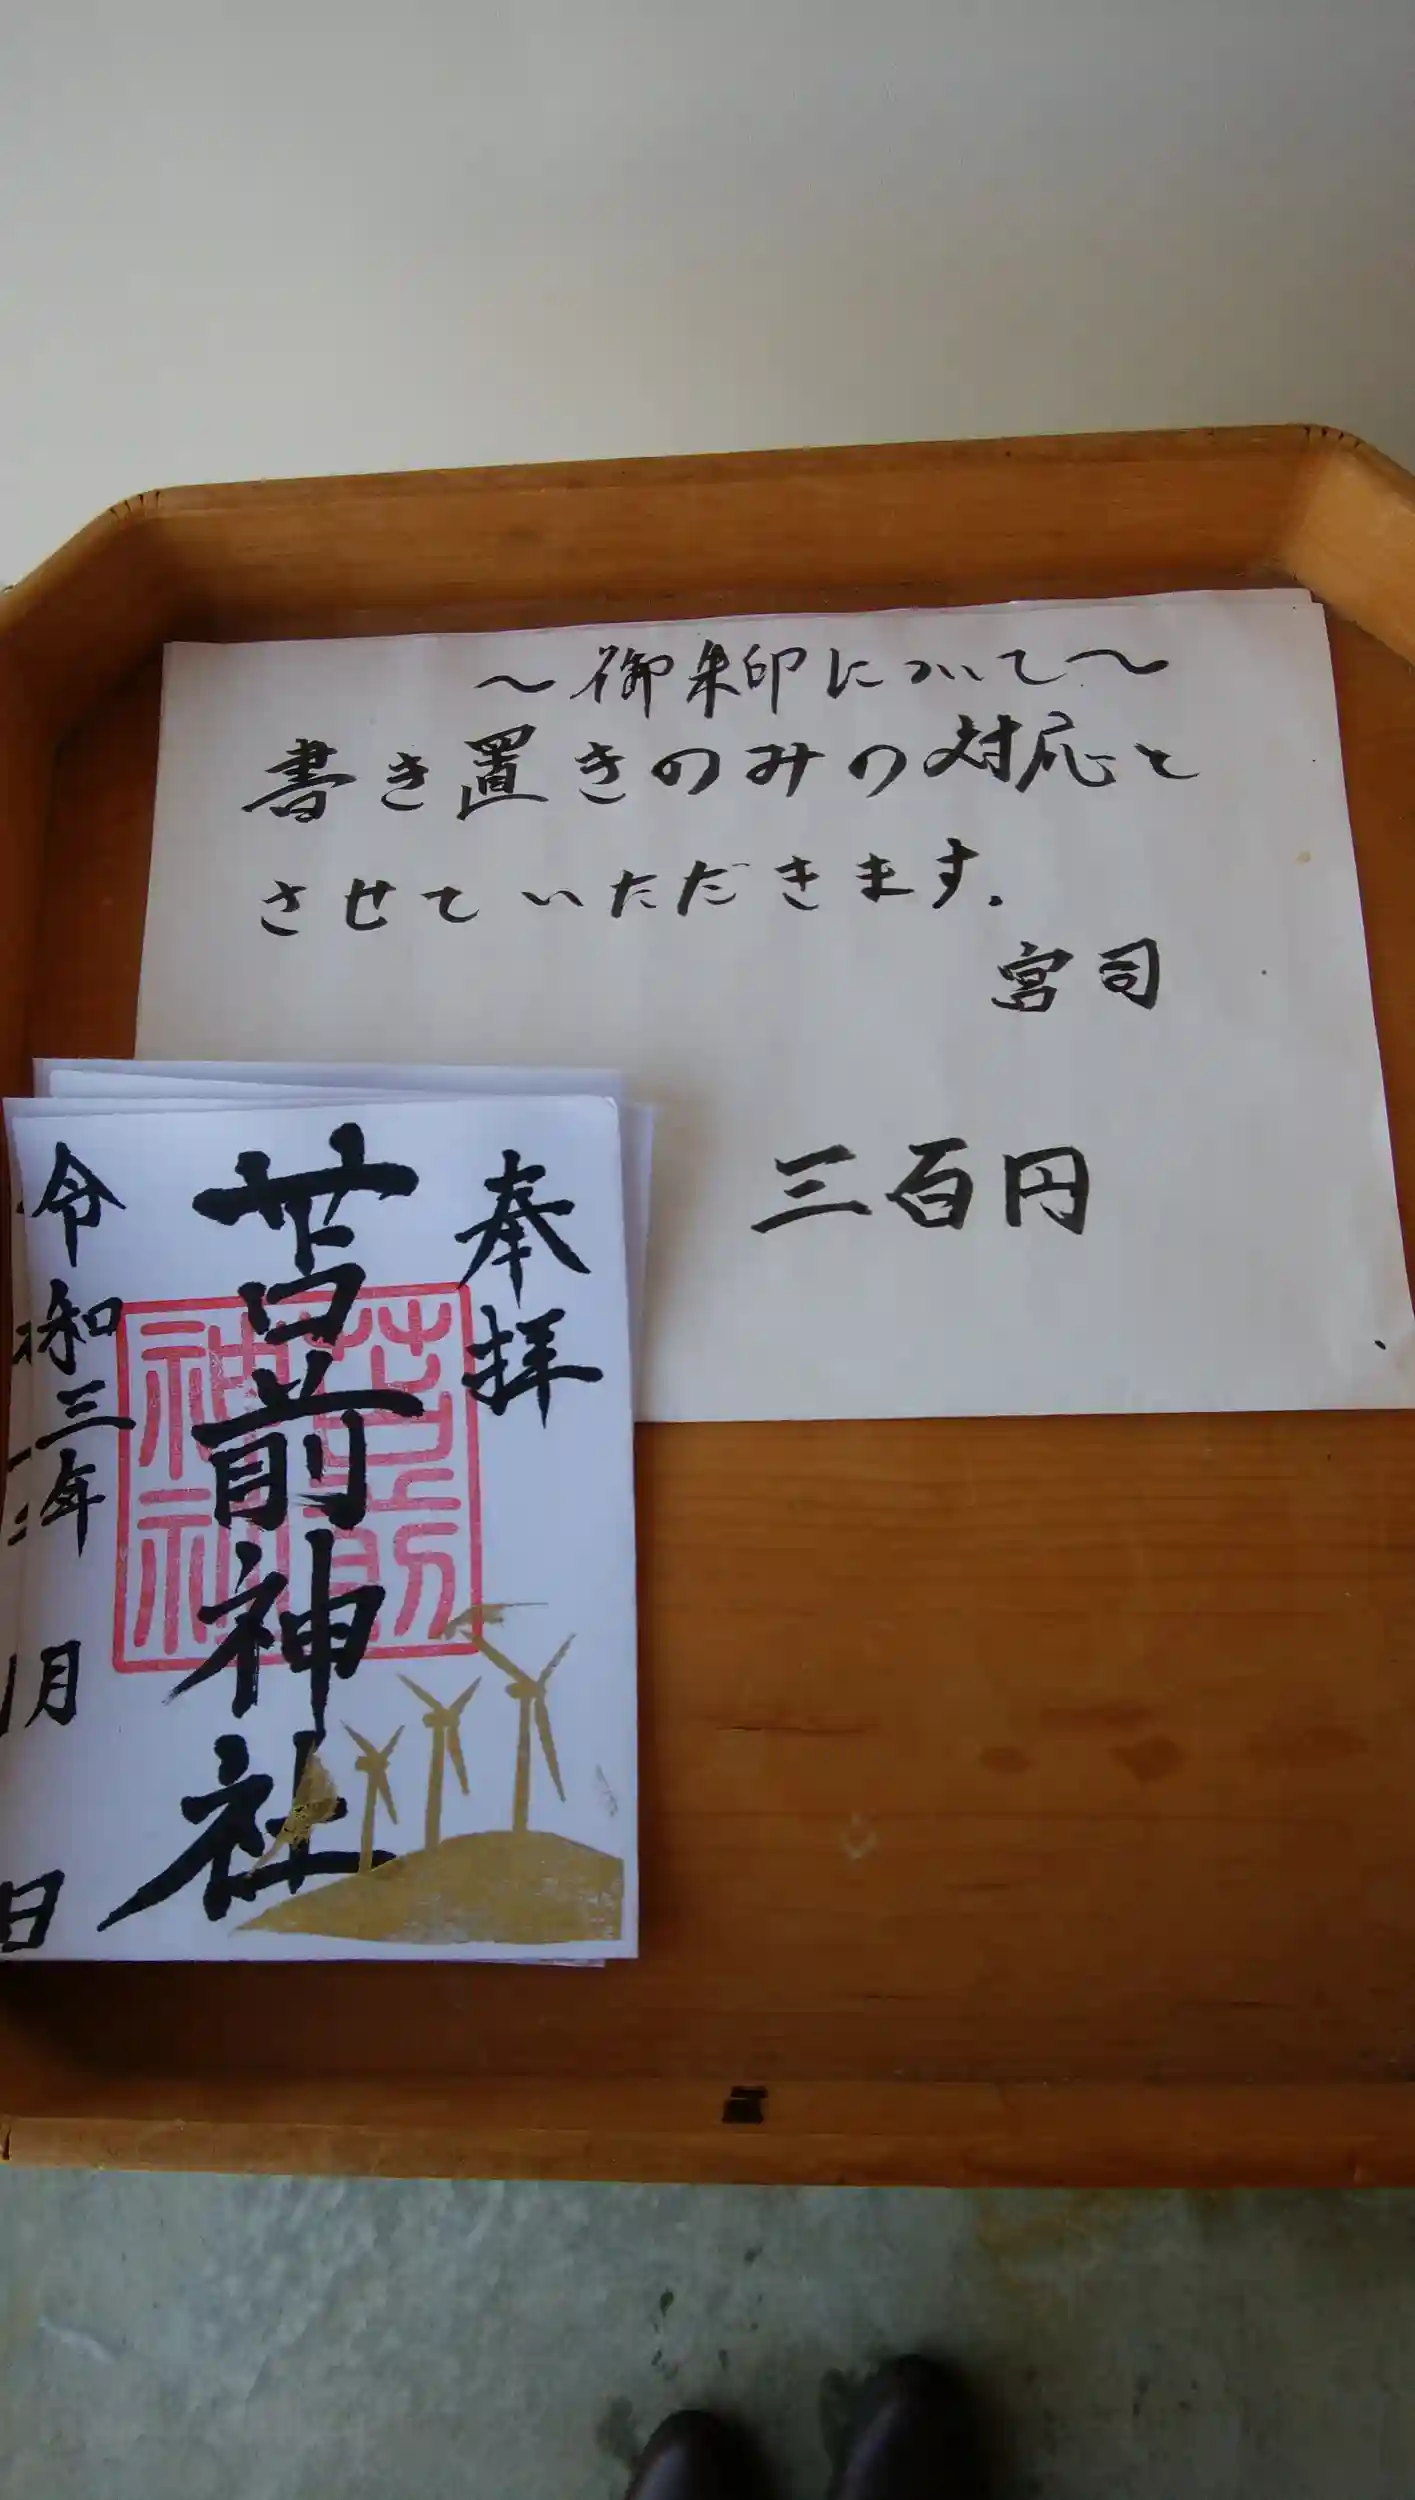 ～御朱印について～
書き置きのみの対応と
させていただきます.
宮司
三百円
奉拝
苫前神社
令和三年 月 日